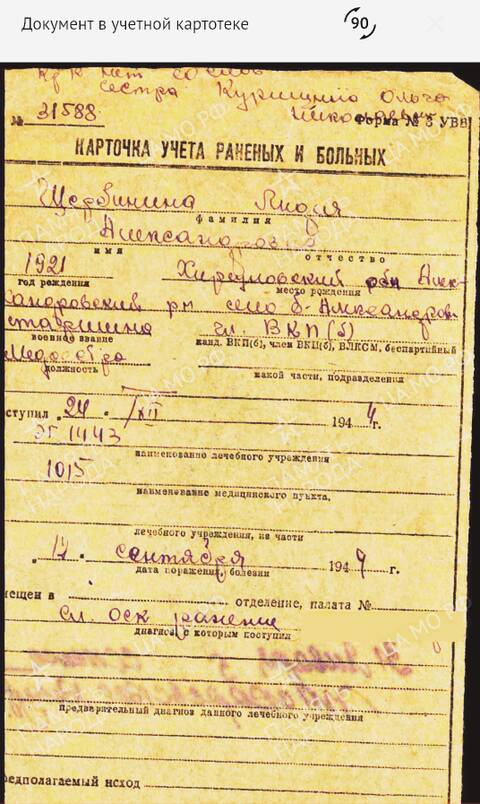 Документ в учетной картотеке
90
сестра Курицына Ольга
№ 31588
Форма № 3 УВВ
КАРТОЧКА УЧЕТА РАНЕНЫХ И БОЛЬНЫХ
Щербинина Лидия
фамилия
Александровна
имя отчество
1921 Хирсуновский рон Алек
год рождения место рождения
сандровский рн село Б-Александров
старшина чл. ВКП(б)
военное звание канд. ВКП(б), член ВКП(б), ВЛКСМ, беспартийный
Медсестра
должность какой части, подразделения
ступил „24 „ XII 1944 г.
ЭГ 1443
наименование лечебного учреждения
1015
наименование медицинского пункта,
лечебного учреждения, из части
„ 12 „ сентября 1944 г.
дата поражения, болезни
мещен в отделение, палата №
сл. оск ранение
диагноз с которым поступил
предварительный диагноз данного лечебного учреждения
редполагаемый исход